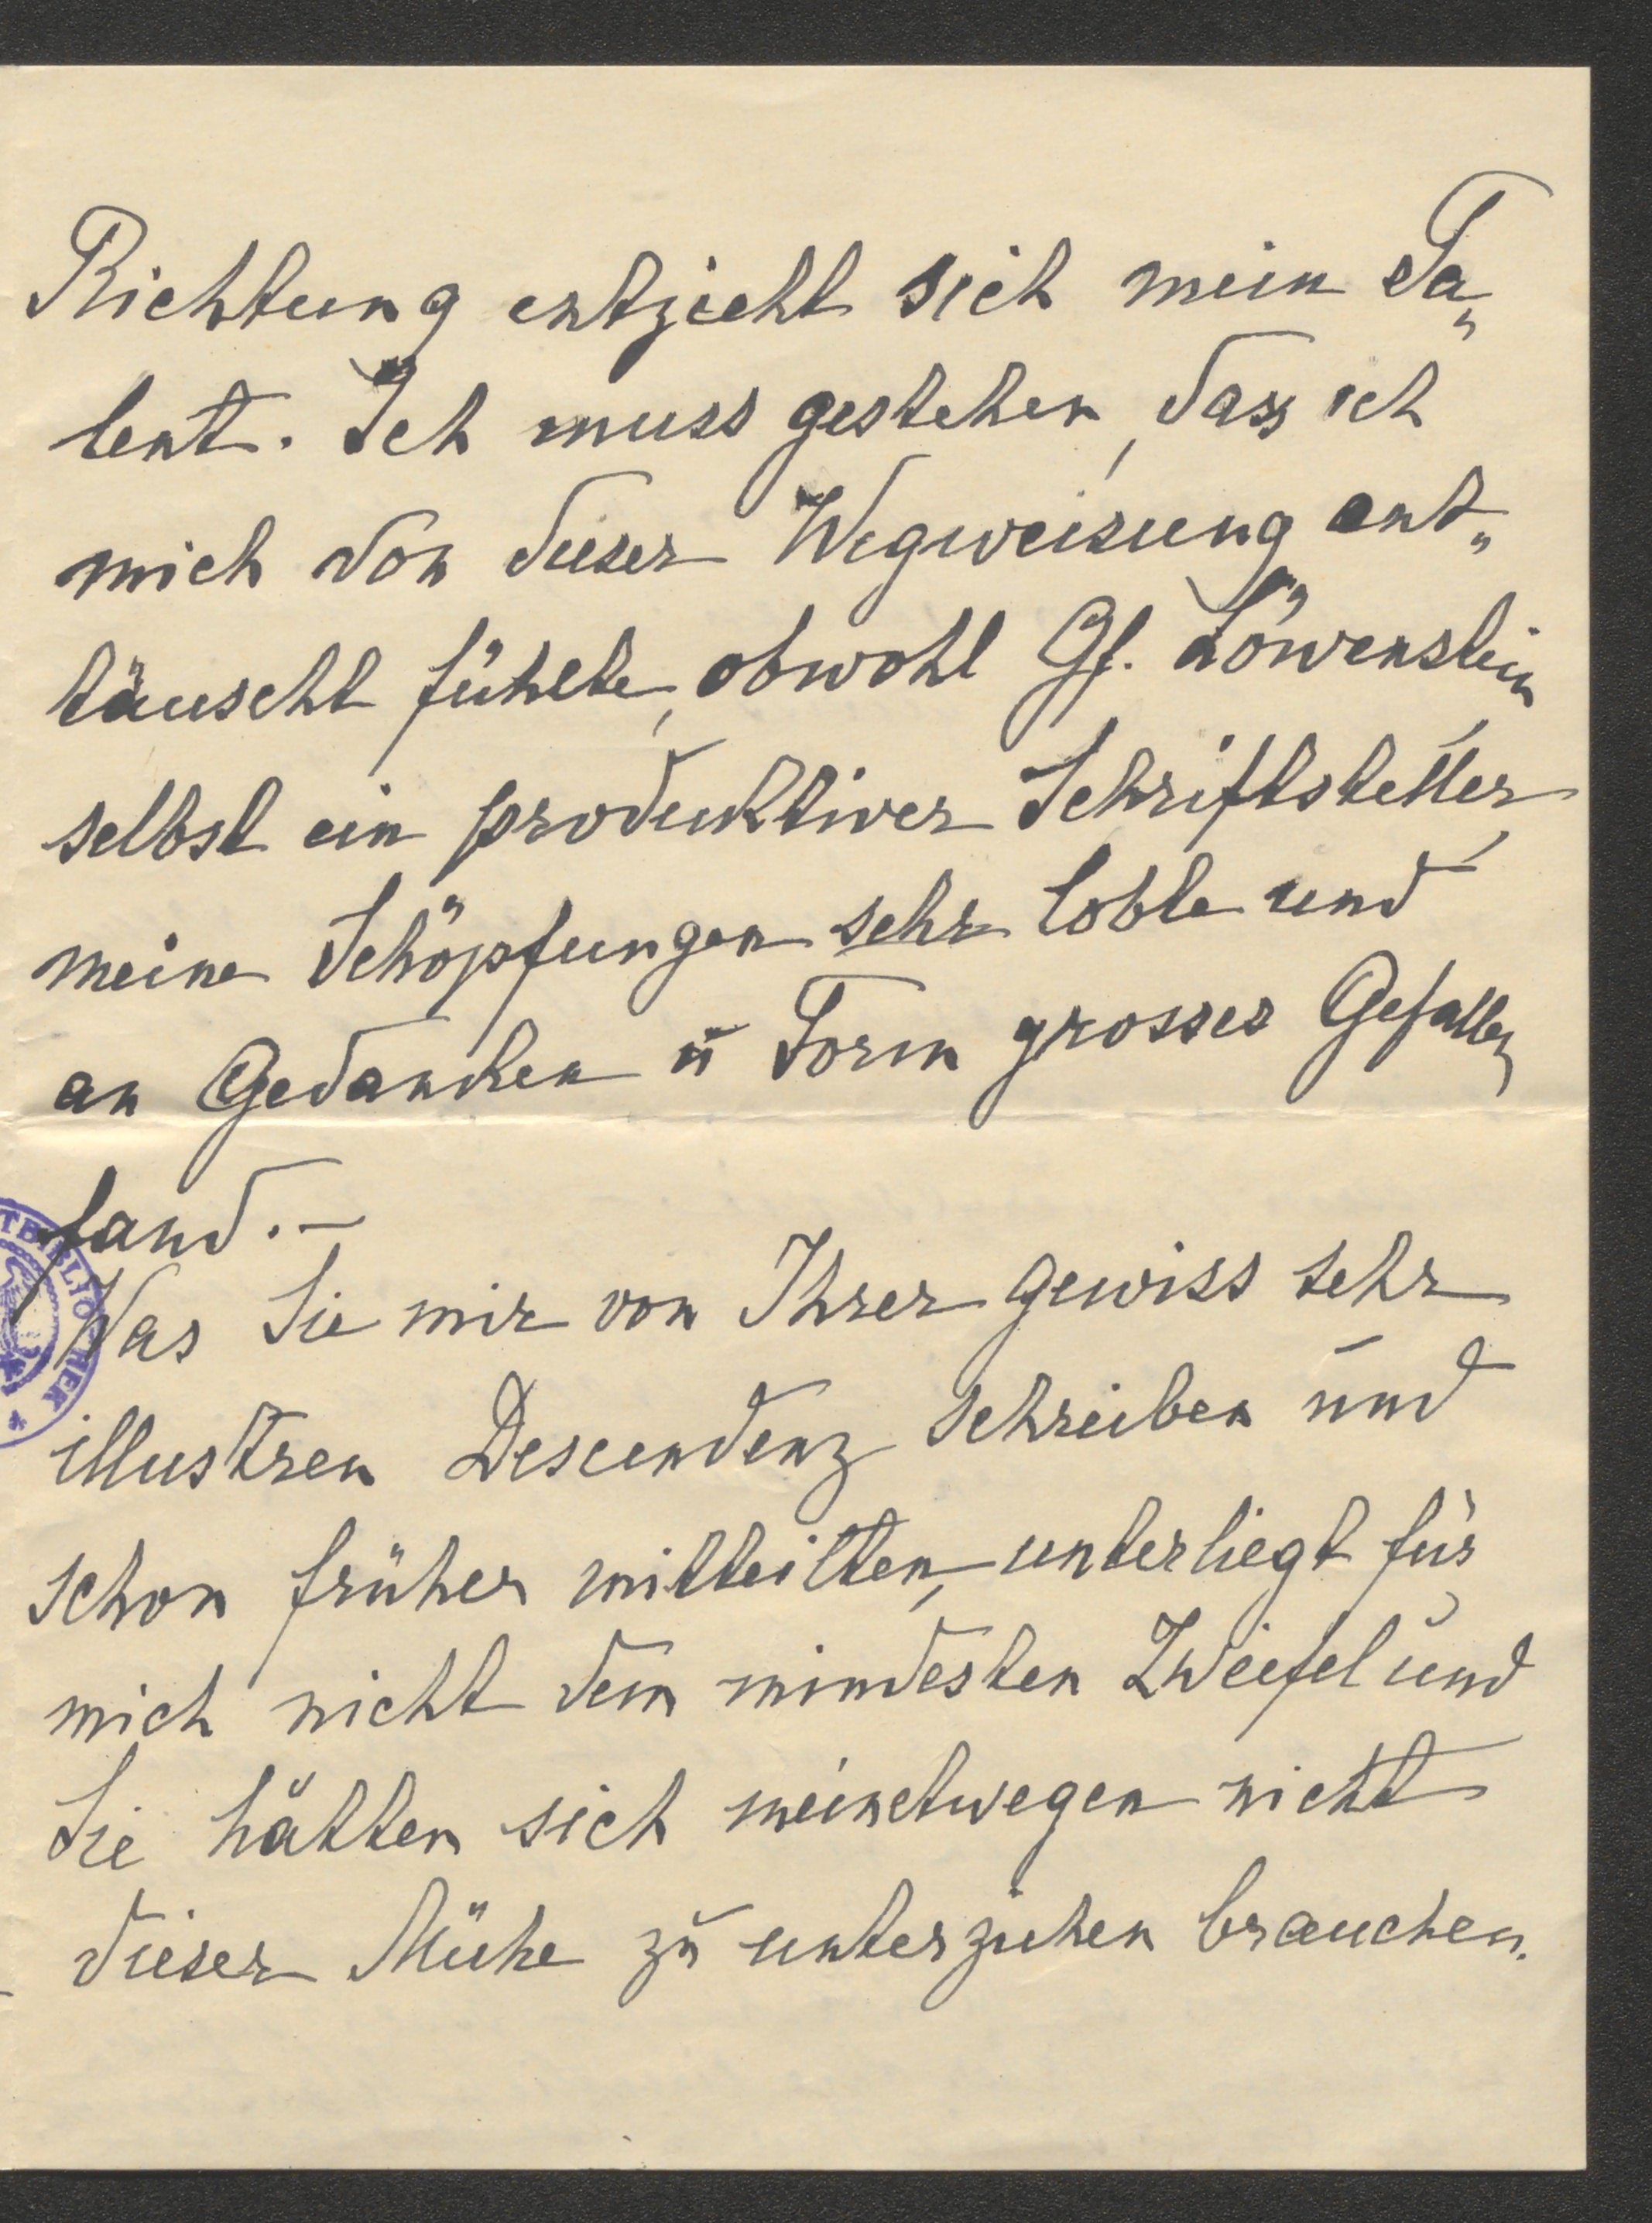 Richtung entzieht sich mein Ta„
lent. Ich muss gestehen, dass ich
mich von dieser Wegweisung ent„
täuscht fühlte, obwohl Gf. Löwenstein,
selbst ein produktiver Schriftsteller,
meine Schöpfungen sehr lobte und
an Gedanken ū Form grosses Gefallen
fand.—
Was Sie mir von Ihrer gewiss sehr
illustren Descendenz schreiben und
schon früher mitteilten, unterliegt für
mich nicht dem mindesten Zweifel und
Sie hätten sich meinetwegen nicht
dieser Mühe zu unterziehen brauchen.